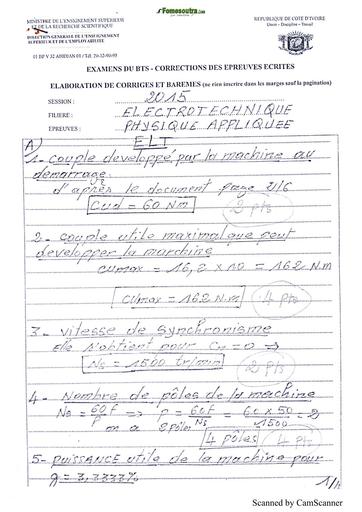 Fomesoutra.com
MINISTERE DE L'ENSEIGNEMENT SUPERIEUR
ET DE LA RECHERCHE SCIENTIFIQUE
DIRECTION GENERALE DE L'ENSEIGNEMENT
SUPERIEUR ET DE L'EMPLOYABILITE
REPUBLIQUE DE COTE D'IVOIRE
Union - Discipline - Travail
EXAMENS DU BTS - CORRECTIONS DES EPREUVES ECRITES
ELABORATION DE CORRIGES ET BAREMES (ne rien inscrire dans les marges sauf la pagination)
SESSION : 2015
FILIERE : ELECTROTECHNIQUE
EPREUVES : PHYSIQUE APPLIQUEE
A) ELT
1- couple developpé par la machine au
demarrage
d'après le document page 2/6
Cud = 60 Nm
2 pts
2- couple utile maximal que peut
developper la marchine
Cumax = 16,2 x 10 = 162 N.m
Cumax = 162 N.m
4 pts
3- vitesse de synchronisme
elle s'obtient pour Cu = 0 =>
Ns = 1500 tr/min
2 pts
4- Nombre de pôles de la machine
Ns = 60f/p => p = 60f/Ns = 60 x 50/1500 = 2
on a 2 pôles
4 pôles
4 pts
5- PUISSANCE utile de la machine pour
g = 3,3333%
Scanned by CamScanner